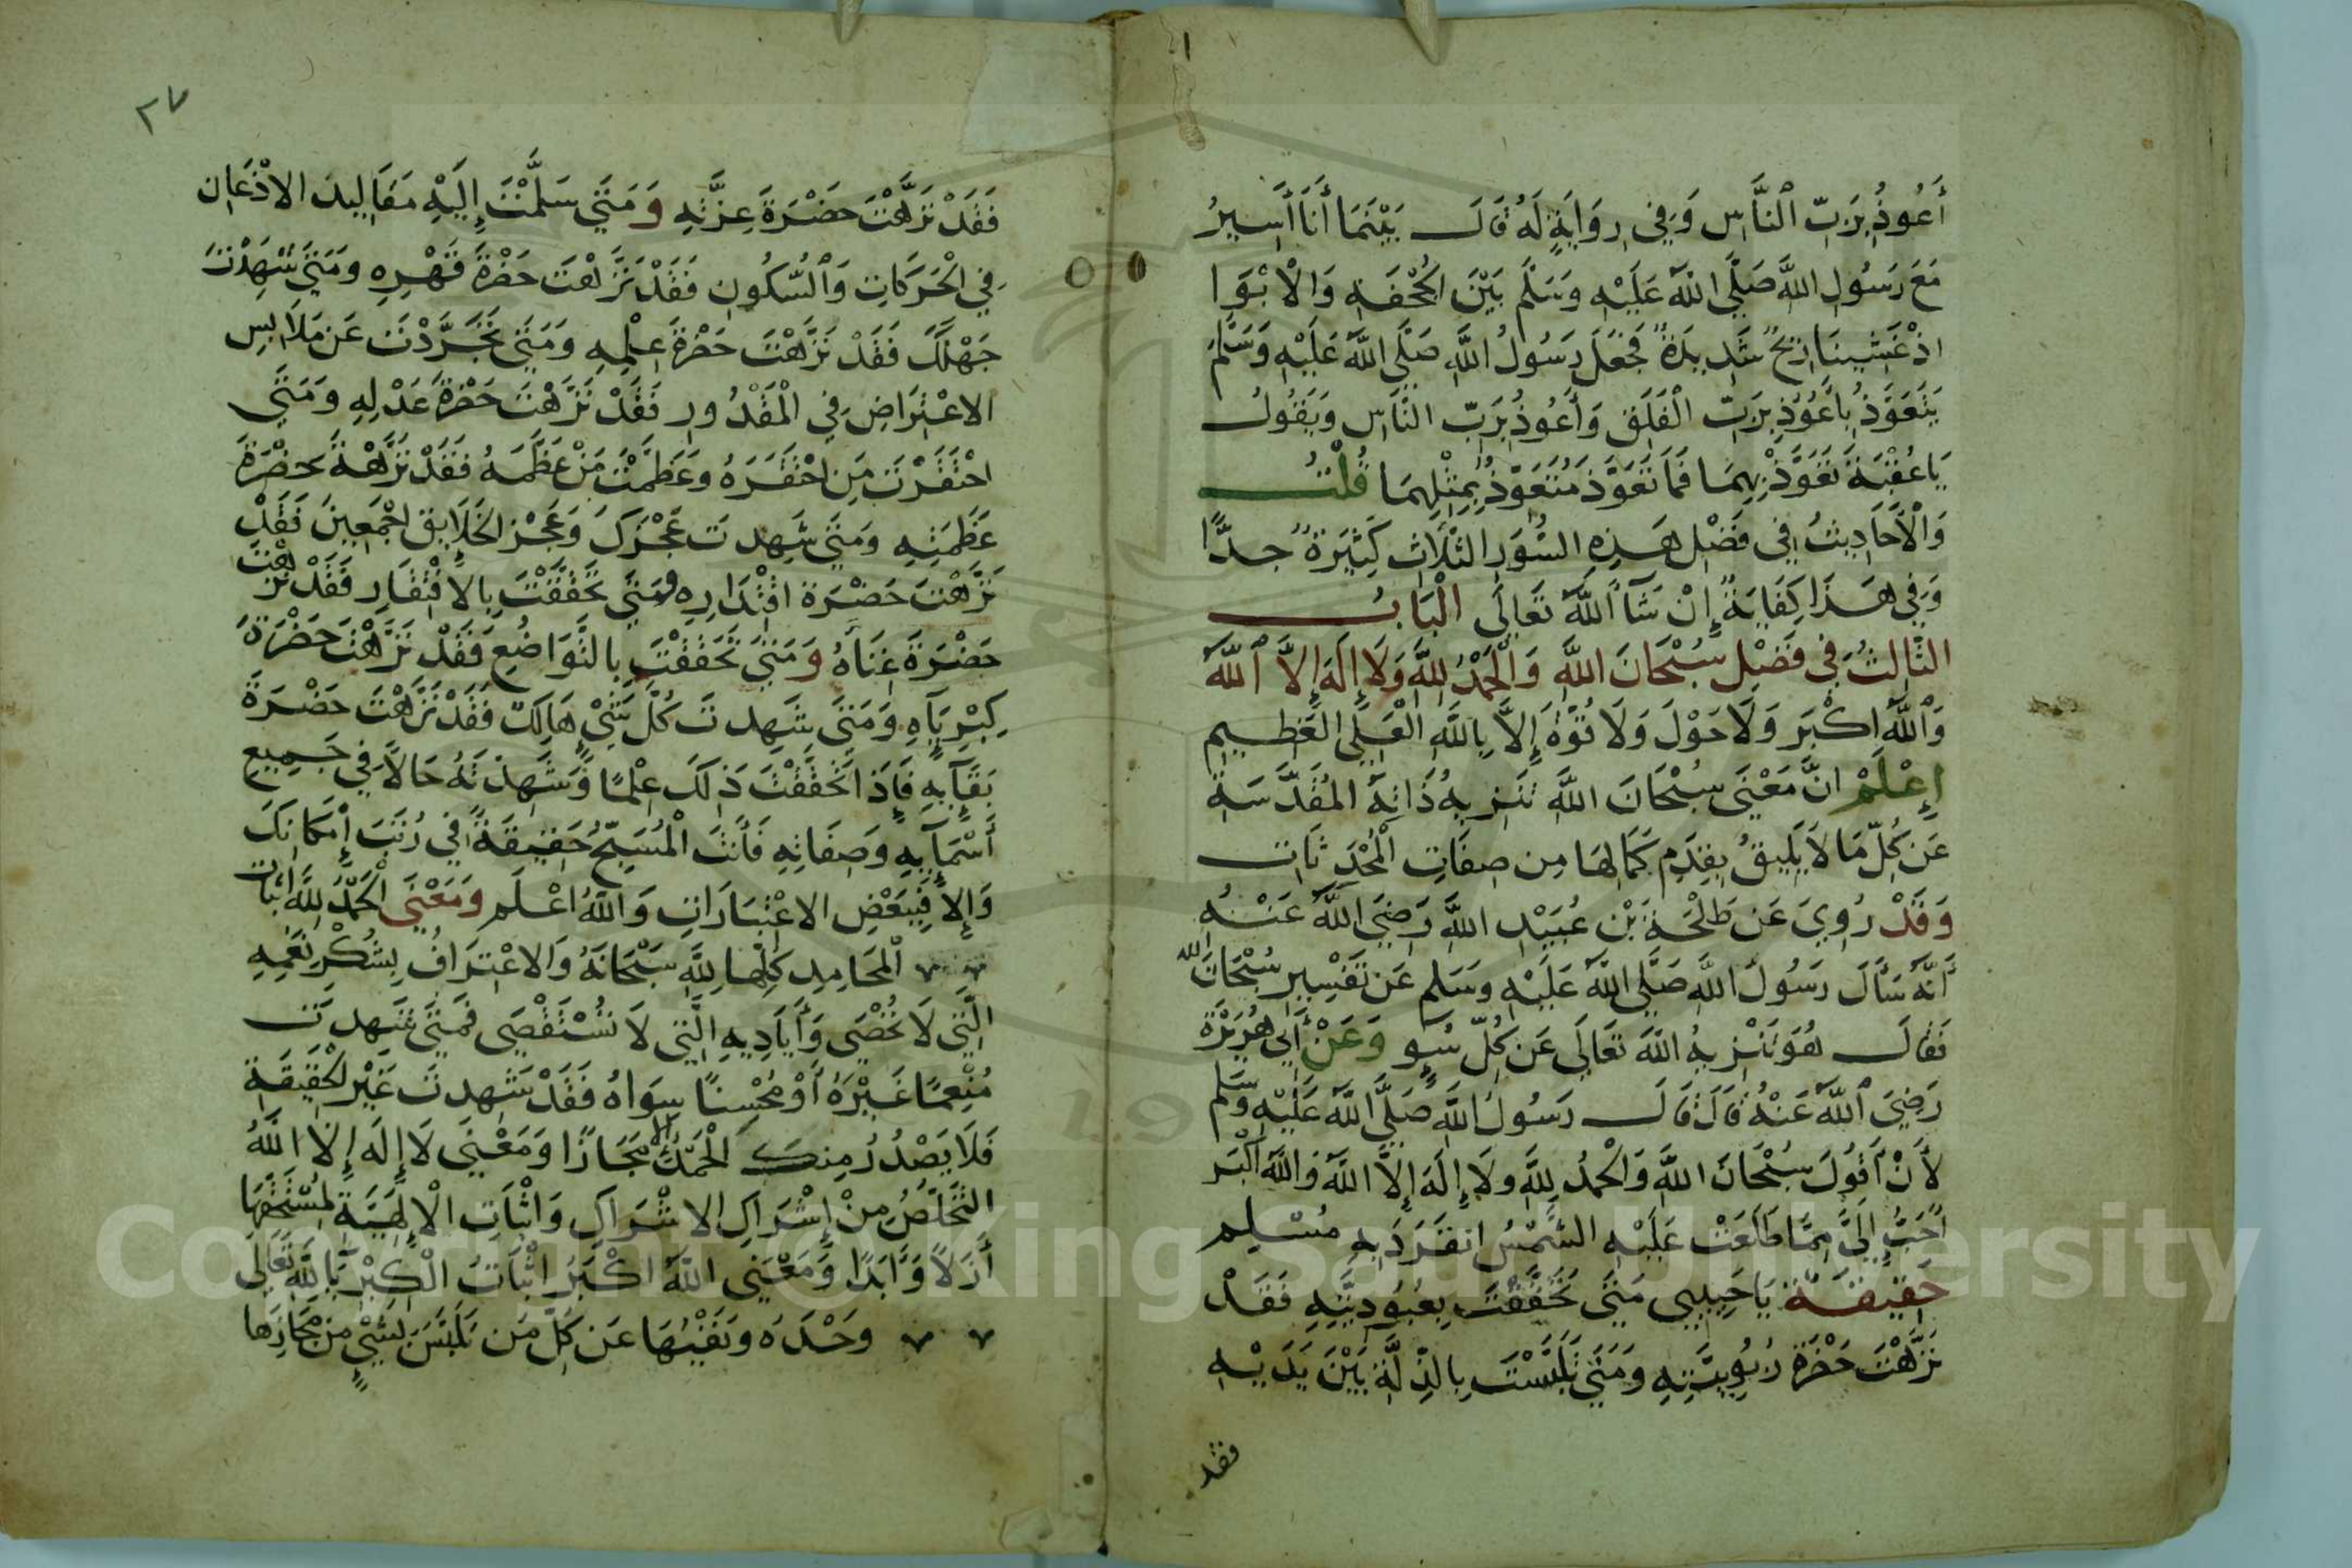 أَعُوذُ بِرَبِّ النَّاسِ وَفِي رِوَايَةٍ لَهُ قَالَ بَيْنَمَا أَنَا أَسِيرُ
مَعَ رَسُولِ اللَّهِ صَلَّى اللَّهُ عَلَيْهِ وَسَلَّمَ بَيْنَ الْجُحْفَةِ وَالْأَبْوَا
اذْ غَشِيَنَا رِيحٌ شَدِيدَةٌ فَجَعَلَ رَسُولُ اللَّهِ صَلَّى اللَّهُ عَلَيْهِ وَسَلَّمَ
يَتَعَوَّذُ بِأَعُوذُ بِرَبِّ الْفَلَقِ وَأَعُوذُ بِرَبِّ النَّاسِ وَيَقُولُ
يَا عُقْبَةُ تَعَوَّذْ بِهِمَا فَمَا تَعَوَّذَ مُتَعَوِّذٌ بِمِثْلِهِمَا قُلْتُ
وَالْأَحَادِيثُ فِي فَضْلِ هَذِهِ السُّوَرِ الثَّلَاثِ كَثِيرَةٌ جِدًّا
وَفِي هَذَا كِفَايَةٌ إِنْ شَآ اللَّهُ تَعَالَى الْبَابُ
الثَّالِثُ فِي فَضْلِ سُبْحَانَ اللَّهِ وَالْحَمْدُ لِلَّهِ وَلَا إِلَهَ إِلَّا اللَّهُ
وَاللَّهُ اكْبَرُ وَلَا حَوْلَ وَلَا قُوَّةَ إِلَّا بِاللَّهِ الْعَلِيِّ الْعَظِيمِ
إِعْلَمْ انَّ مَعْنَى سُبْحَانَ اللَّهِ تَنْزِيهُ ذَاتِهِ الْمُقَدَّسَةِ
عَنْ كُلِّ مَا لَا يَلِيقُ بِقِدَمِ كَمَالِهَا مِن صِفَاتِ الْمُحْدَثَاتِ
وَقَدْ رُوِيَ عَن طَلْحَةَ بْنِ عُبَيْدِ اللَّهِ رَضِيَ اللَّهُ عَنْهُ
أَنَّهُ سَأَلَ رَسُولَ اللَّهِ صَلَّى اللَّهُ عَلَيْهِ وَسَلَّمَ عَن تَفْسِيرِ سُبْحَانَ اللَّهِ
فَقَالَ هُوَ تَنْزِيهُ اللَّهِ تَعَالَى عَن كُلِّ سُوٍ وَعَنْ أَبِي هُرَيْرَةَ
رَضِيَ اللَّهُ عَنْهُ قَالَ قَالَ رَسُولُ اللَّهِ صَلَّى اللَّهُ عَلَيْهِ وَسَلَّمَ
لَأَنْ أَقُولَ سُبْحَانَ اللَّهِ وَالْحَمْدُ لِلَّهِ وَلَا إِلَهَ إِلَّا اللَّهُ وَاللَّهُ أَكْبَر
أَحَبُّ إِلَيَّ مِمَّا طَلَعَتْ عَلَيْهِ الشَّمْسُ انفَرَدَ بِهِ مُسْلِم
حَقِيقَةٌ يَا حَبِيبِي مَتَى تَحَقَّقْتَ بِعُبُودِيَّتِهِ فَقَدْ
نَزَّهْتَ حَضْرَةَ رُبُوبِيَّتِهِ وَمَتَى تَلَبَّسْتَ بِالذِّلَّةِ بَيْنَ يَدَيْهِ
فقد
٢٧
فَقَدْ نَزَّهْتَ حَضْرَةَ عِزَّتِهِ وَمَتَى سَلَّمْتَ إِلَيْهِ مَقَالِيدَ الاذْعَانِ
فِي الْحَرَكَاتِ وَالسُّكُونِ فَقَدْ نَزَّهْتَ حَضْرَةَ قَهْرِهِ وَمَتَى شَهِدْتَ
جَهْلَكَ فَقَدْ نَزَّهْتَ حَضْرَةَ عِلْمِهِ وَمَتَى تَجَرَّدْتَ عَن مَلَابِسِ
الاعْتِرَاضِ فِي الْمَقْدُورِ فَقَدْ نَزَّهْتَ حَضْرَةَ عَدْلِهِ وَمَتَى
احْتَقَرْتَ مَنِ احْتَقَرَهُ وَعَظَّمْتَ مَنْ عَظَّمَهُ فَقَدْ نَزَّهْتَ حَضْرَةَ
عَظَمَتِهِ وَمَتَى شَهِدتَ عَجْزَكَ وَعَجْزَ الْخَلَايِقِ اجْمَعِينَ فَقَدْ
نَزَّهْتَ حَضْرَةَ اقْتِدَارِهِ وَمَتَى تَحَقَّقْتَ بِالافْتِقَارِ فَقَدْ نَزَّهْتَ
حَضْرَةَ غِنَاهُ وَمَتَى تَحَقَّقْتَ بِالتَّوَاضُعِ فَقَدْ نَزَّهْتَ حَضْرَةَ
كِبْرِيَآهِ وَمَتَى شَهِدتَ كُلَّ شَيْءٍ هَالِكٌ فَقَدْ نَزَّهْتَ حَضْرَةَ
بَقَآيِهِ فَإِذَا تَحَقَّقْتَ ذَلِكَ عِلْمًا وَشَهِدْتَهُ حَالًا فِي جَمِيعِ
أَسْمَآيِهِ وَصِفَاتِهِ فَأَنْتَ الْمُسَبِّحُ حَقِيقَةً فِي رُتَبِ إِمْكَانِكَ
وَإِلَّا فَبِبَعْضِ الاعْتِبَارَاتِ وَاللَّهُ اعْلَم وَمَعْنَى الْحَمْدُ لِلَّهِ اثْبَات
الْمَحَامِدِ كُلِّهَا لِلَّهِ سُبْحَانَهُ وَالاعْتِرَافُ بِشُكْرِ نِعَمِهِ
الَّتِي لَا تُحْصَى وَأَيَادِيهِ الَّتِي لَا تُسْتَقْصَى فَمَتَى شَهِدتَ
مُنْعِمًا غَيْرَهُ أَوْ مُحْسِنًا سِوَاهُ فَقَدْ شَهِدتَ غَيْرَ الْحَقِيقَةِ
فَلَا يَصْدُرُ مِنكَ الْحَمْدُ إلا مَجَازًا وَمَعْنَى لَا إِلَهَ إِلَّا اللَّهُ
التَّخَلُّصُ مِنْ إِشْرَاكِ الاشْرَاكِ وَاثْبَات الْإِلَهِيَّةِ لِمُسْتَحِقِّهَا
أَزَلًا وَأَبَدًا وَمَعْنَى اللَّهُ اكْبَرُ اثْبَاتُ الْكِبْرِيَآ لِلَّهِ تَعَالَى
وَحْدَهُ وَنَفْيُهَا عَن كُلِّ مَن تَلَبَّسَ بِشَيْءٍ مِنْ مَجَازِهَا
Copyright © King Saud University